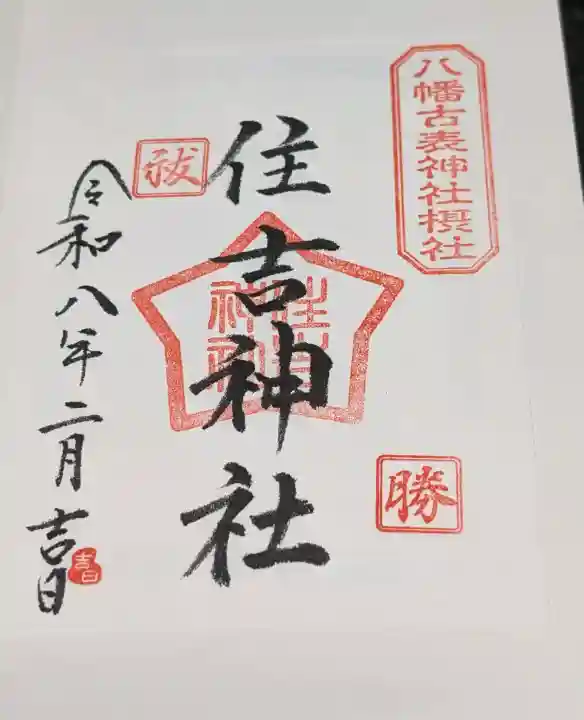 八幡古表神社摂社
勝
住吉神社
住吉神社
祓
令和八年二月吉日
吉日